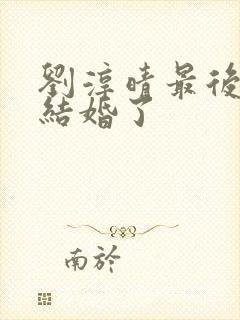 劉淳晴最後
結婚了
南於